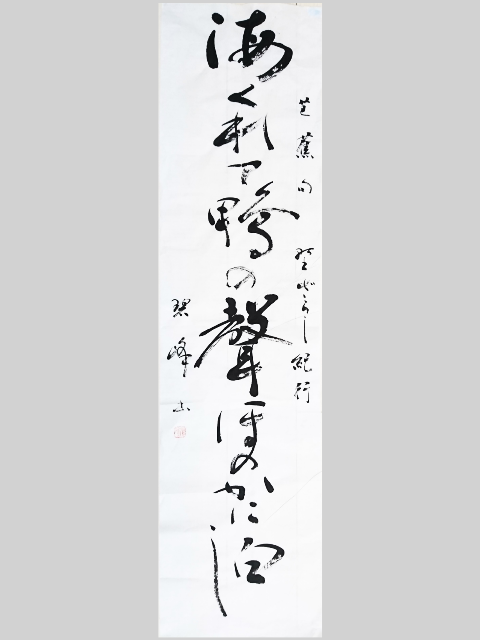 芭蕉句 野ざらし紀行
海くれて鴨の聲ほのかに白し
翠峰書